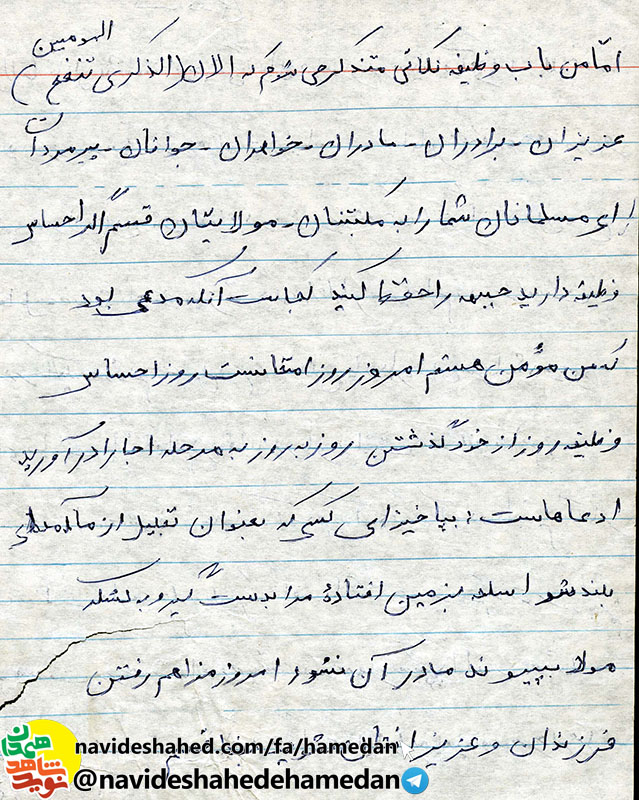 المومنین
امّا من باب وظیفه نکاتی متذکر می شوم که الان (الذکری تنفع )
عزیزان - برادران - مادران - خواهران - جوانان - پیرمردان
ای مسلمانان شما را به مکتبتان - مولایتان قسم اگر احساس
وظیفه دارید جبهه را حفظ کنید کجاست آنکه مدعی بود
که من مؤمن هستم امروز روز امتحانست روز احساس
وظیفه روز از خود گذشتن روز به روز به مرحله اجرا در آوردن
ادعاهاست ؛ بپاخیز ای کسی که بعنوان تقبیل از ما آمده ای
بلند شو اسلحه بزمین افتادهٔ مرا بدست گیر و به لشکر
مولا بپیوند مادر آن نشو امروز مزاحم رفتن
فرزندان و عزیز
navideshahed.com/fa/hamedan
@navideshahedehamedan
نوید شاهد همدان